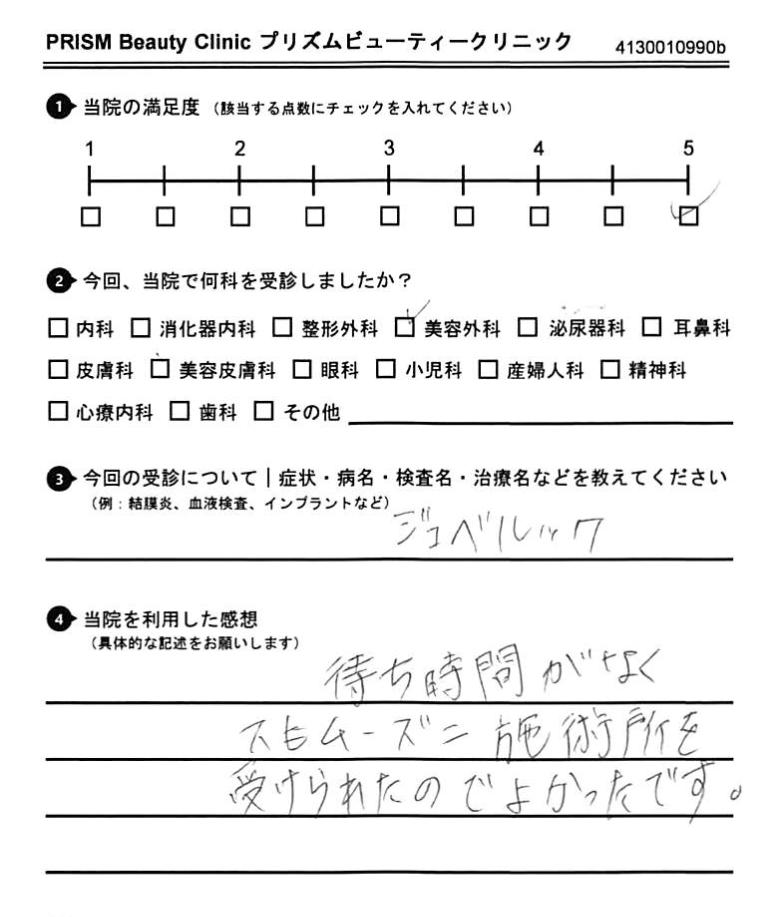 PRISM Beauty Clinic プリズムビューティークリニック 4130010990b
1 当院の満足度 (該当する点数にチェックを入れてください)
1 2 3 4 5
2 今回、当院で何科を受診しましたか?
□ 内科 □ 消化器内科 □ 整形外科 ☑ 美容外科 □ 泌尿器科 □ 耳鼻科
□ 皮膚科 □ 美容皮膚科 □ 眼科 □ 小児科 □ 産婦人科 □ 精神科
□ 心療内科 □ 歯科 □ その他
3 今回の受診について|症状・病名・検査名・治療名などを教えてください
(例:結膜炎、血液検査、インプラントなど)
ジュベルック
4 当院を利用した感想
(具体的な記述をお願いします)
待ち時間がなく
スムーズニ施術所を
受けられたのでよかったです。